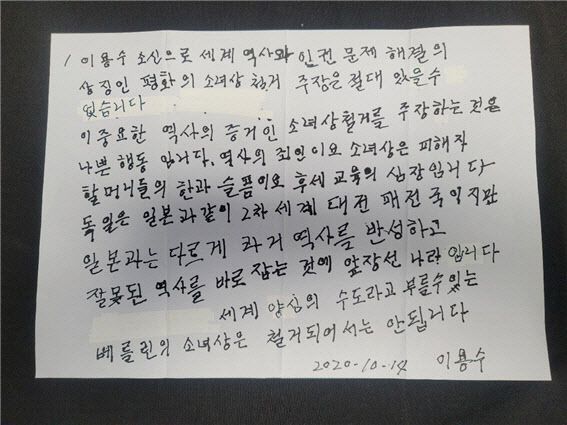 / 이용수 소신으로 세계 역사와 인권 문제 해결의
상징인 평화의 소녀상 철거 주장은 절대 있을수
없습니다
이 중요한 역사의 증거인 소녀상철거를 주장하는 것은
나쁜 행동 입니다. 역사의 죄인이요 소녀상은 피해자
할머니들의 한과 슬픔이요 후세 교육의 심장입니다
독일은 일본과같이 2차 세계 대전 패전 국 이지만
일본과는 다르게 과거 역사를 반성하고
잘못된 역사를 바로 잡는 것에 앞장선 나라 입니다
세계 양심의 수도라고 부를수있는
베를린의 소녀상은 철거되어서는 안됩니다
2020-10-14 이용수